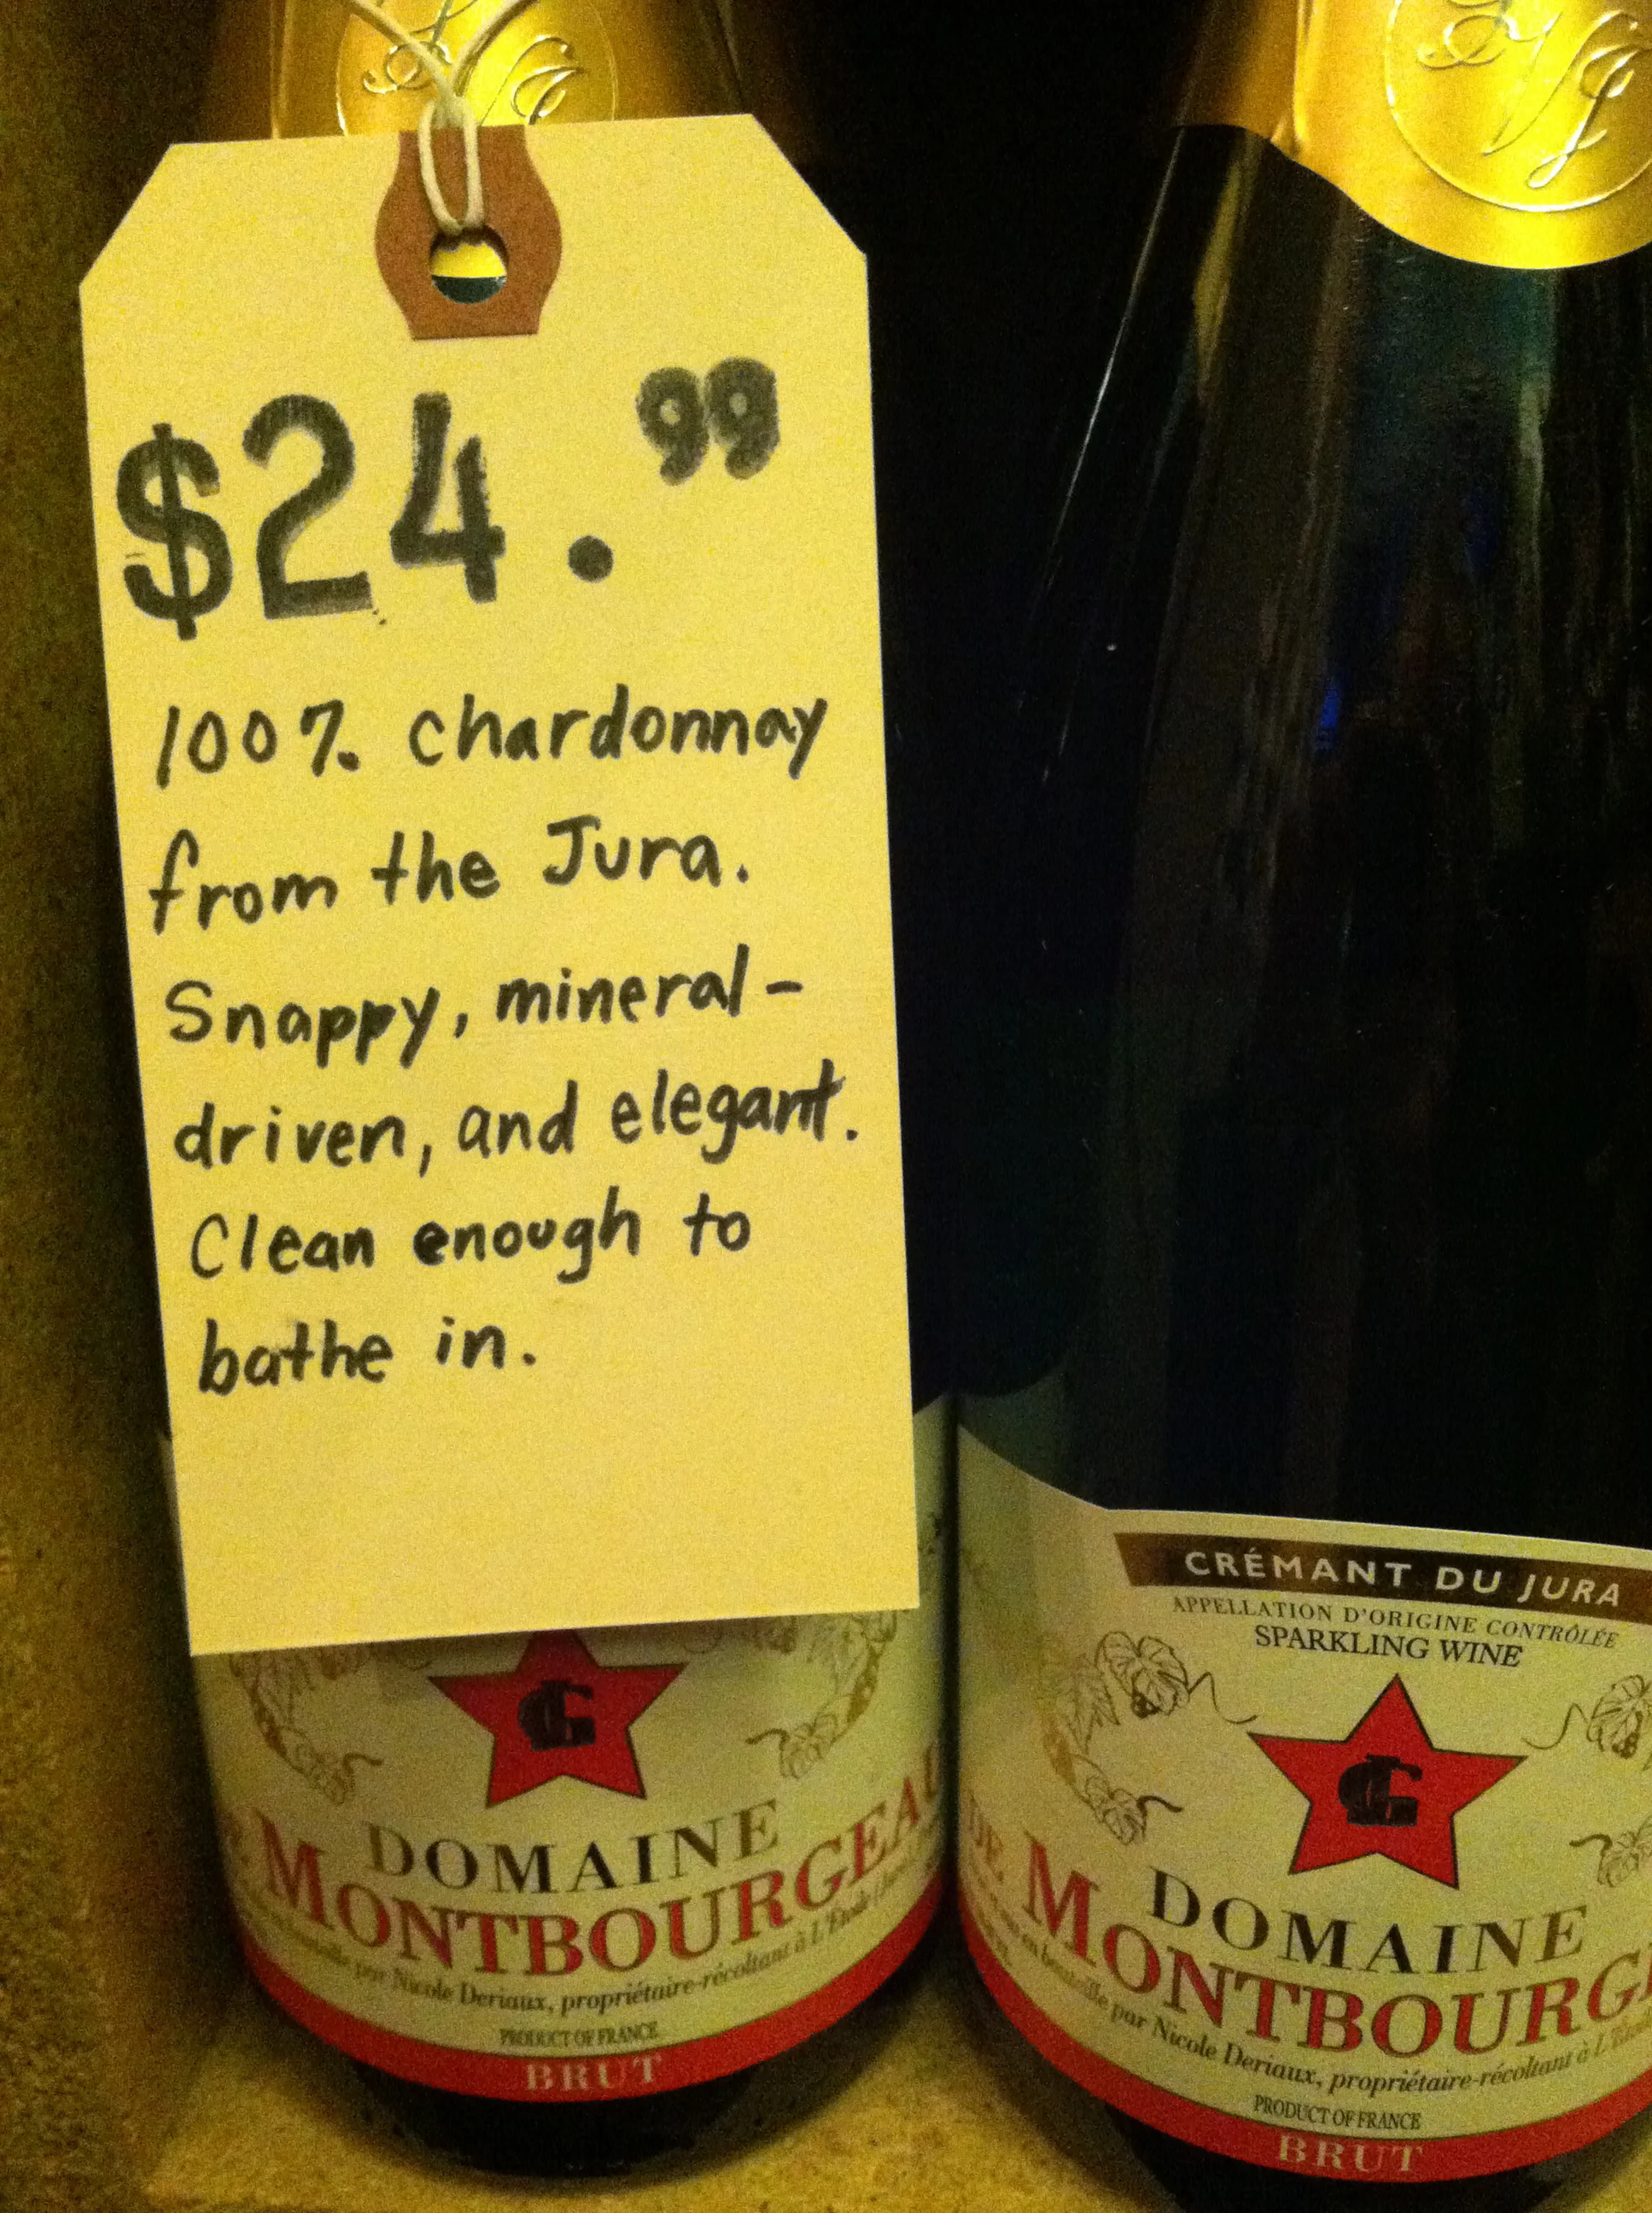 $24.99
100% chardonnay
from the Jura.
Snappy, mineral-
driven, and elegant.
Clean enough to
bathe in.
DOMAINE
DE MONTBOURGEAU
par Nicole Deriaux, propriétaire-récoltant à L'Etoile
PRODUCT OF FRANCE
BRUT
CRÉMANT DU JURA
APPELLATION D'ORIGINE CONTRÔLÉE
SPARKLING WINE
DOMAINE
DE MONTBOURG
en bouteille par Nicole Deriaux, propriétaire-récoltant à
PRODUCT OF FRANCE
BRUT